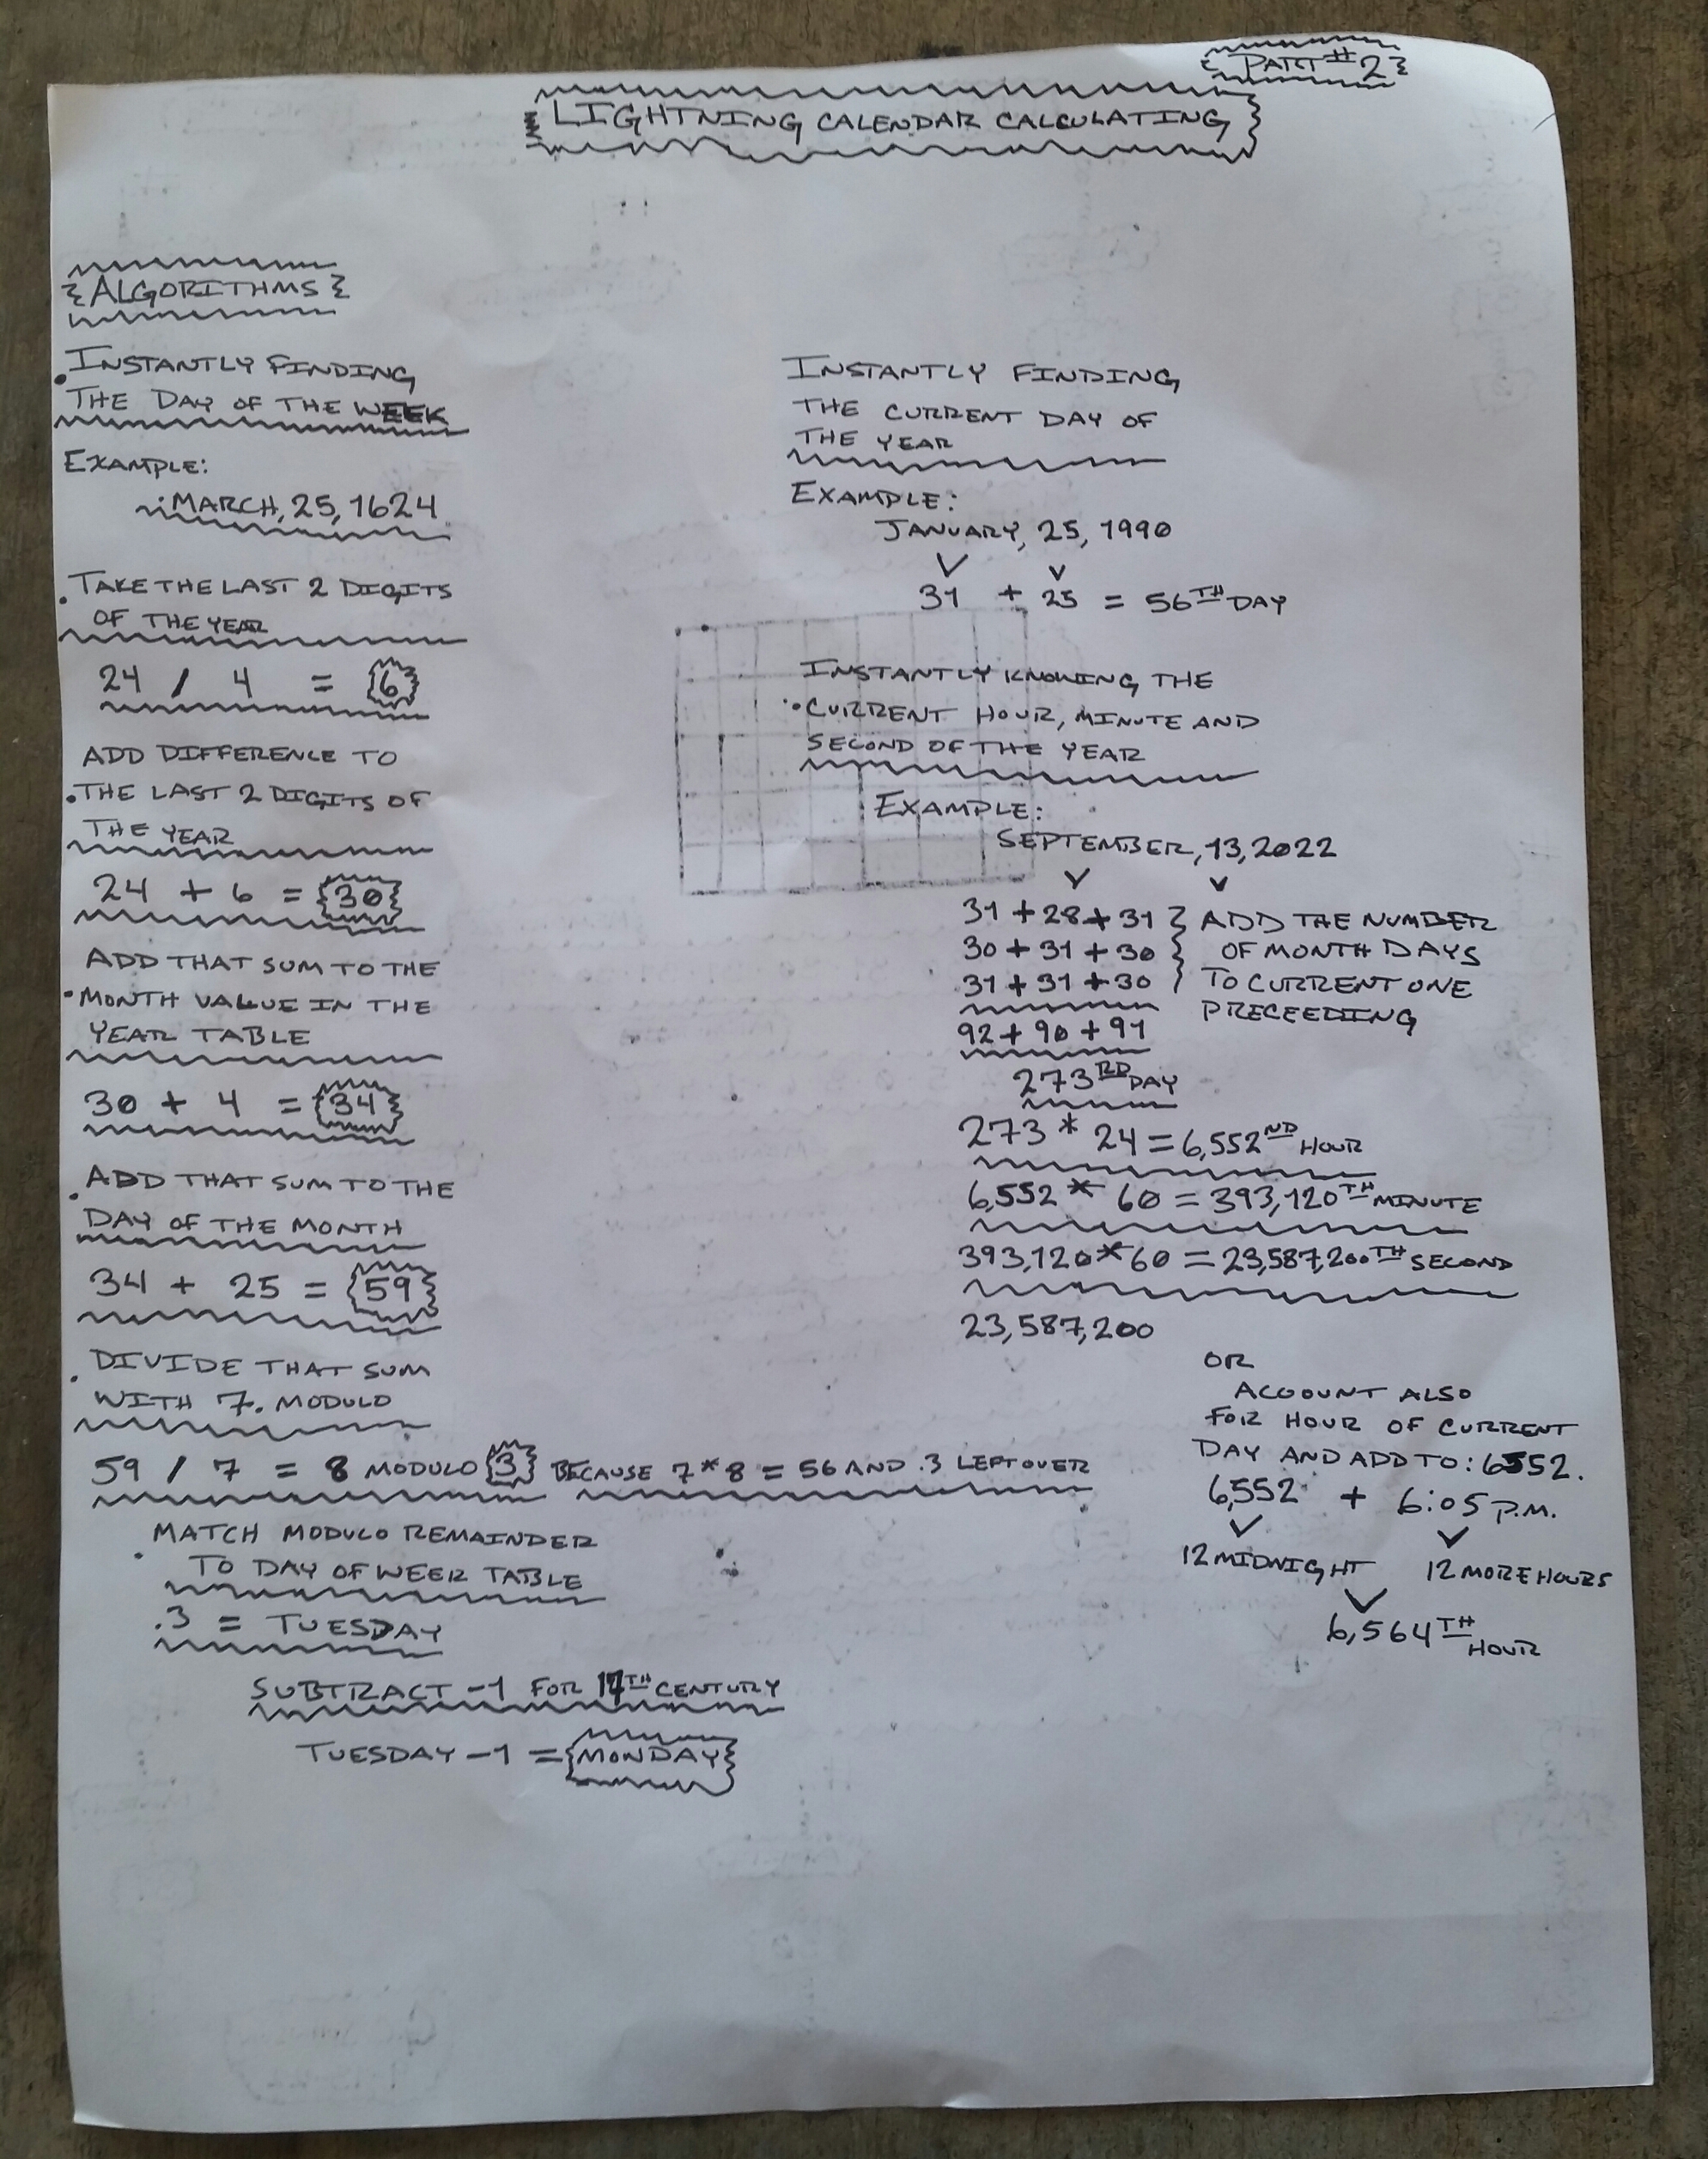 PART #2
LIGHTNING CALENDAR CALCULATING
ALGORITHMS
. INSTANTLY FINDING
THE DAY OF THE WEEK
EXAMPLE:
MARCH, 25, 1624
. TAKE THE LAST 2 DIGITS
OF THE YEAR
24 / 4 = {6}
ADD DIFFERENCE TO
. THE LAST 2 DIGITS OF
THE YEAR
24 + 6 = {30}
ADD THAT SUM TO THE
. MONTH VALUE IN THE
YEAR TABLE
30 + 4 = {34}
. ADD THAT SUM TO THE
DAY OF THE MONTH
34 + 25 = {59}
. DIVIDE THAT SUM
WITH 7. MODULO
59 / 7 = 8 MODULO {3} BECAUSE 7*8 = 56 AND .3 LEFTOVER
. MATCH MODULO REMAINDER
TO DAY OF WEEK TABLE
.3 = TUESDAY
SUBTRACT -1 FOR 17TH CENTURY
TUESDAY -1 = {MONDAY}
INSTANTLY FINDING
THE CURRENT DAY OF
THE YEAR
EXAMPLE:
JANUARY, 25, 1990
31 + 25 = 56TH DAY
INSTANTLY KNOWING THE
. CURRENT HOUR, MINUTE AND
SECOND OF THE YEAR
EXAMPLE:
SEPTEMBER, 13, 2022
31 + 28 + 31 } ADD THE NUMBER
30 + 31 + 30 } OF MONTH DAYS
31 + 31 + 30 } TO CURRENT ONE
PRECEEDING
92 + 90 + 91
273RD DAY
273 * 24 = 6,552ND HOUR
6,552 * 60 = 393,120TH MINUTE
393,120 * 60 = 23,587,200TH SECOND
23,587,200
OR
ACCOUNT ALSO
FOR HOUR OF CURRENT
DAY AND ADD TO: 6552.
6,552 + 6:05 P.M.
12 MIDNIGHT 12 MORE HOURS
6,564TH HOUR